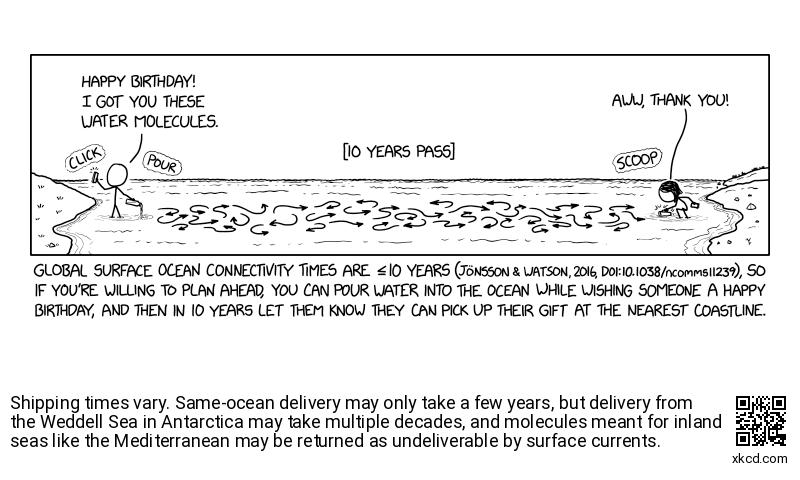 HAPPY BIRTHDAY!
I GOT YOU THESE
WATER MOLECULES.
AWW, THANK YOU!
[10 YEARS PASS]
CLICK
POUR
SCOOP
GLOBAL SURFACE OCEAN CONNECTIVITY TIMES ARE ≤10 YEARS (JÖNSSON & WATSON, 2016, DOI:10.1038/ncomms11239), SO
IF YOU'RE WILLING TO PLAN AHEAD, YOU CAN POUR WATER INTO THE OCEAN WHILE WISHING SOMEONE A HAPPY
BIRTHDAY, AND THEN IN 10 YEARS LET THEM KNOW THEY CAN PICK UP THEIR GIFT AT THE NEAREST COASTLINE.
Shipping times vary. Same-ocean delivery may only take a few years, but delivery from
the Weddell Sea in Antarctica may take multiple decades, and molecules meant for inland
seas like the Mediterranean may be returned as undeliverable by surface currents.
xkcd.com